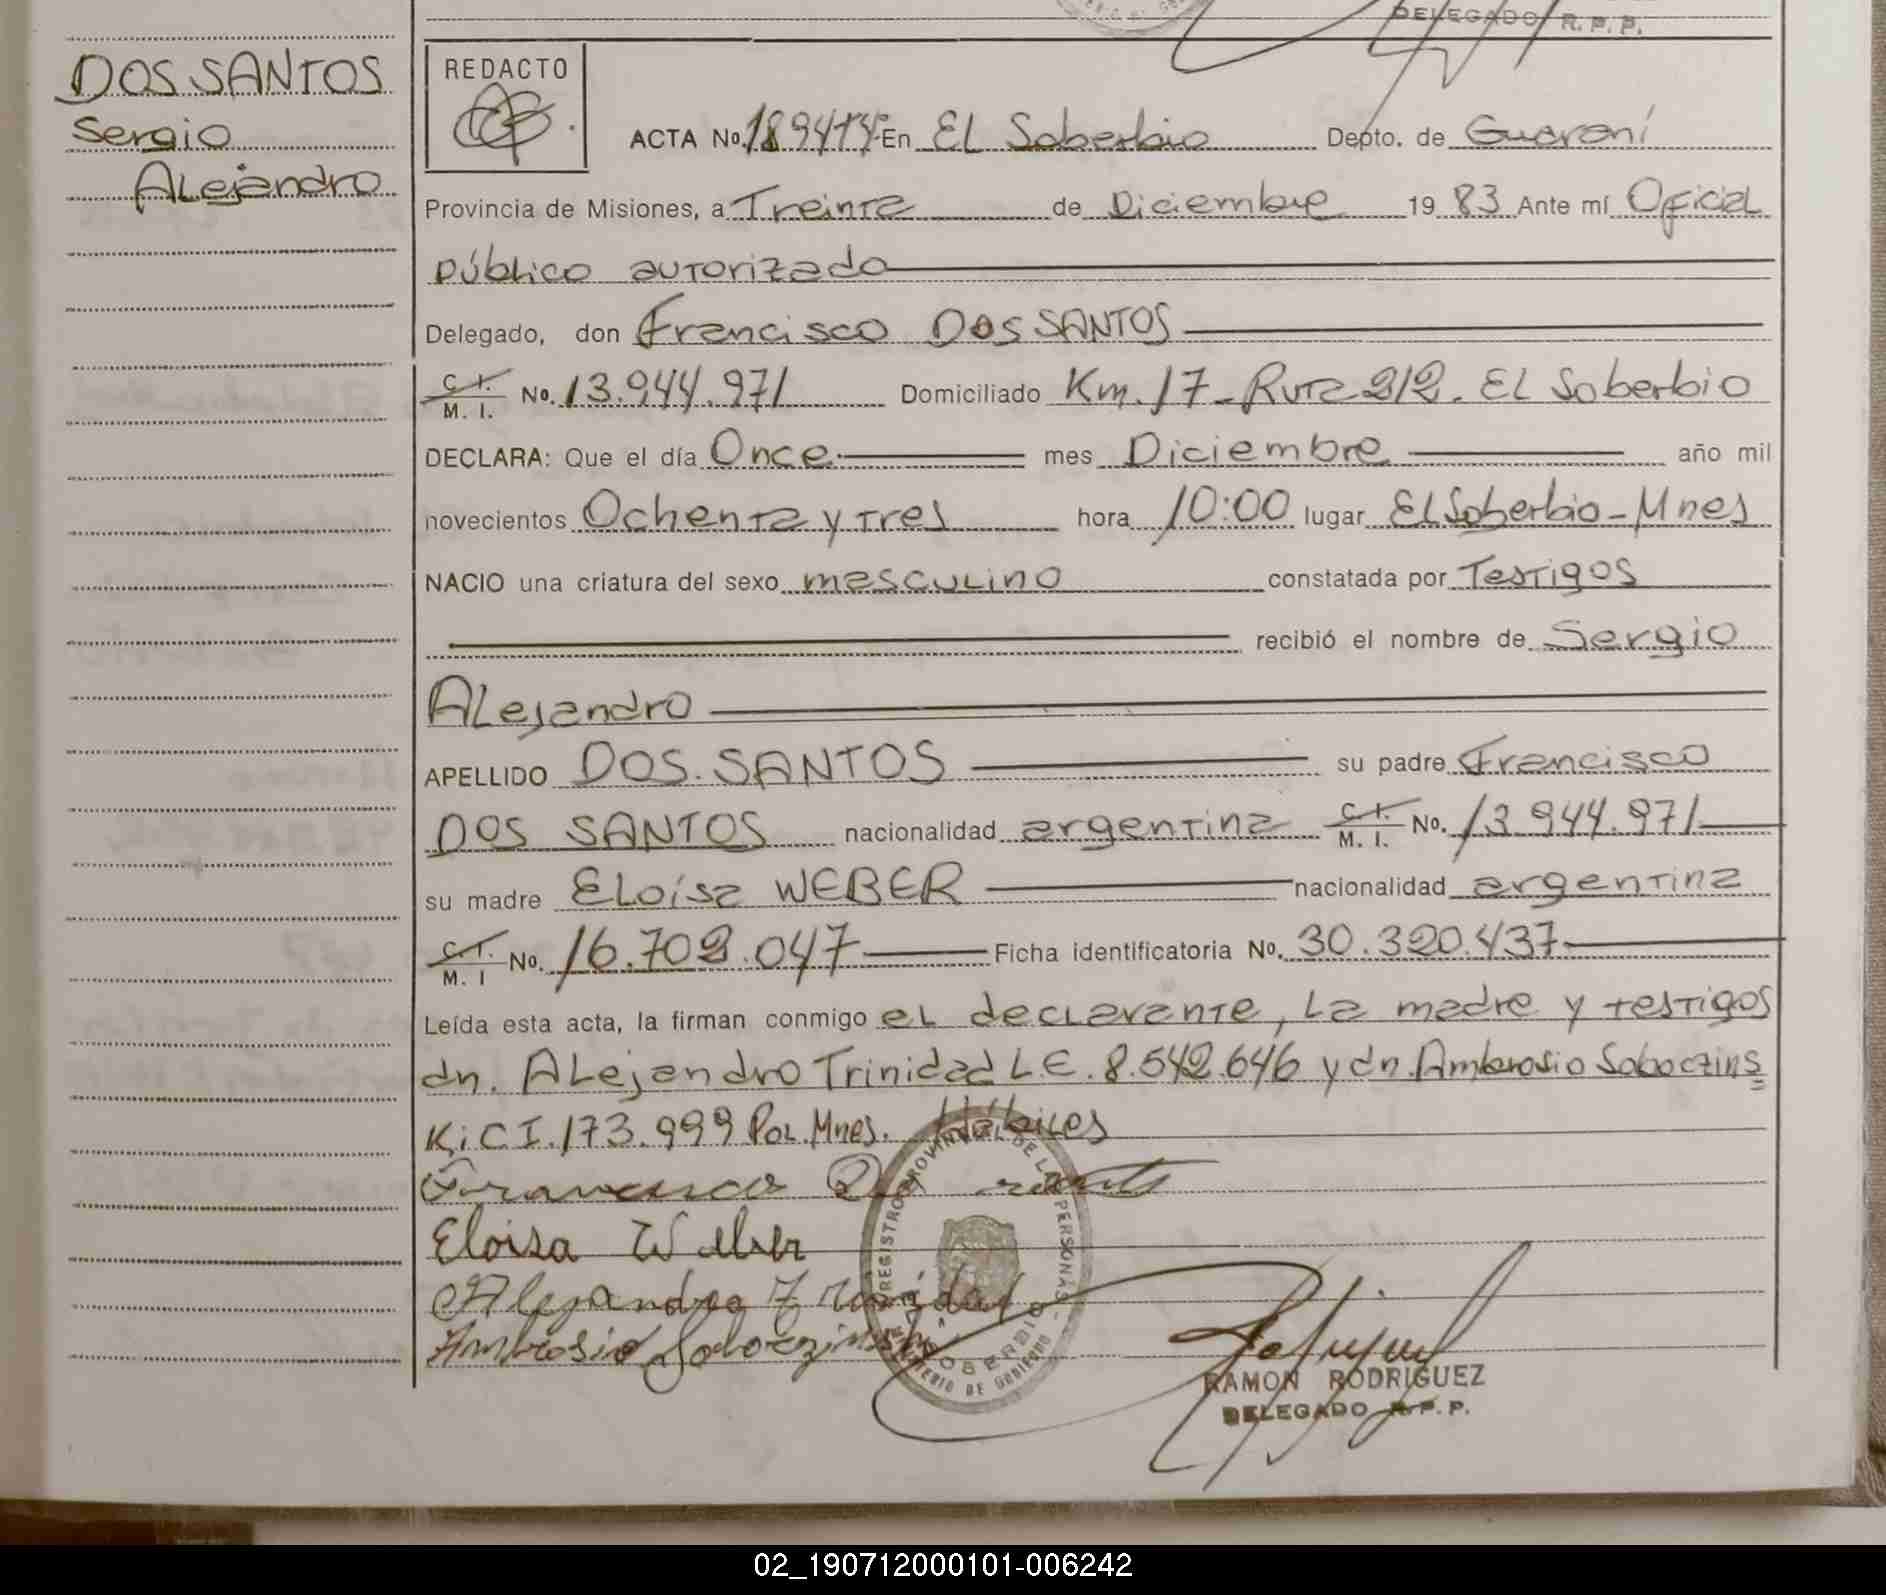 DELEGADO R. P. P.
DOS SANTOS
Sergio
Alejandro
REDACTO
ACTA No. En El Soberbio Depto. de Guaraní
Provincia de Misiones, a Treinta de Diciembre 19 83 Ante mí Oficial
público autorizado
Delegado, don Francisco DOS SANTOS
C. I. M. I. No. 13.944.971 Domiciliado Km. 17 - Ruta 212. El Soberbio
DECLARA: Que el día Once mes Diciembre año mil
novecientos Ochenta y tres hora 10:00 lugar El Soberbio - Mnes
NACIO una criatura del sexo masculino constatada por Testigos
recibió el nombre de Sergio
Alejandro
APELLIDO DOS SANTOS su padre Francisco
DOS SANTOS nacionalidad argentina C. I. M. I. No. 13.944.971
su madre Eloísa WEBER nacionalidad argentina
C. I. M. I No. 16.702.047 Ficha identificatoria No. 30.320.437
Leída esta acta, la firman conmigo el declarante, la madre y testigos
dn. Alejandro Trinidad L.E. 8.542.646 y dn. Ambrosio Soboczins
Ki C I. 173.999 Pol. Mnes. Hábiles
Francisco Dos Santos
Eloisa Weber
Alejandro Trinidad
Ambrosio Soboczinski
REGISTRO PROVINCIAL DE LAS PERSONAS
SOBERBIO
MINISTERIO DE GOBIERNO
RAMON RODRIGUEZ
DELEGADO R. P. P.
02_190712000101-006242